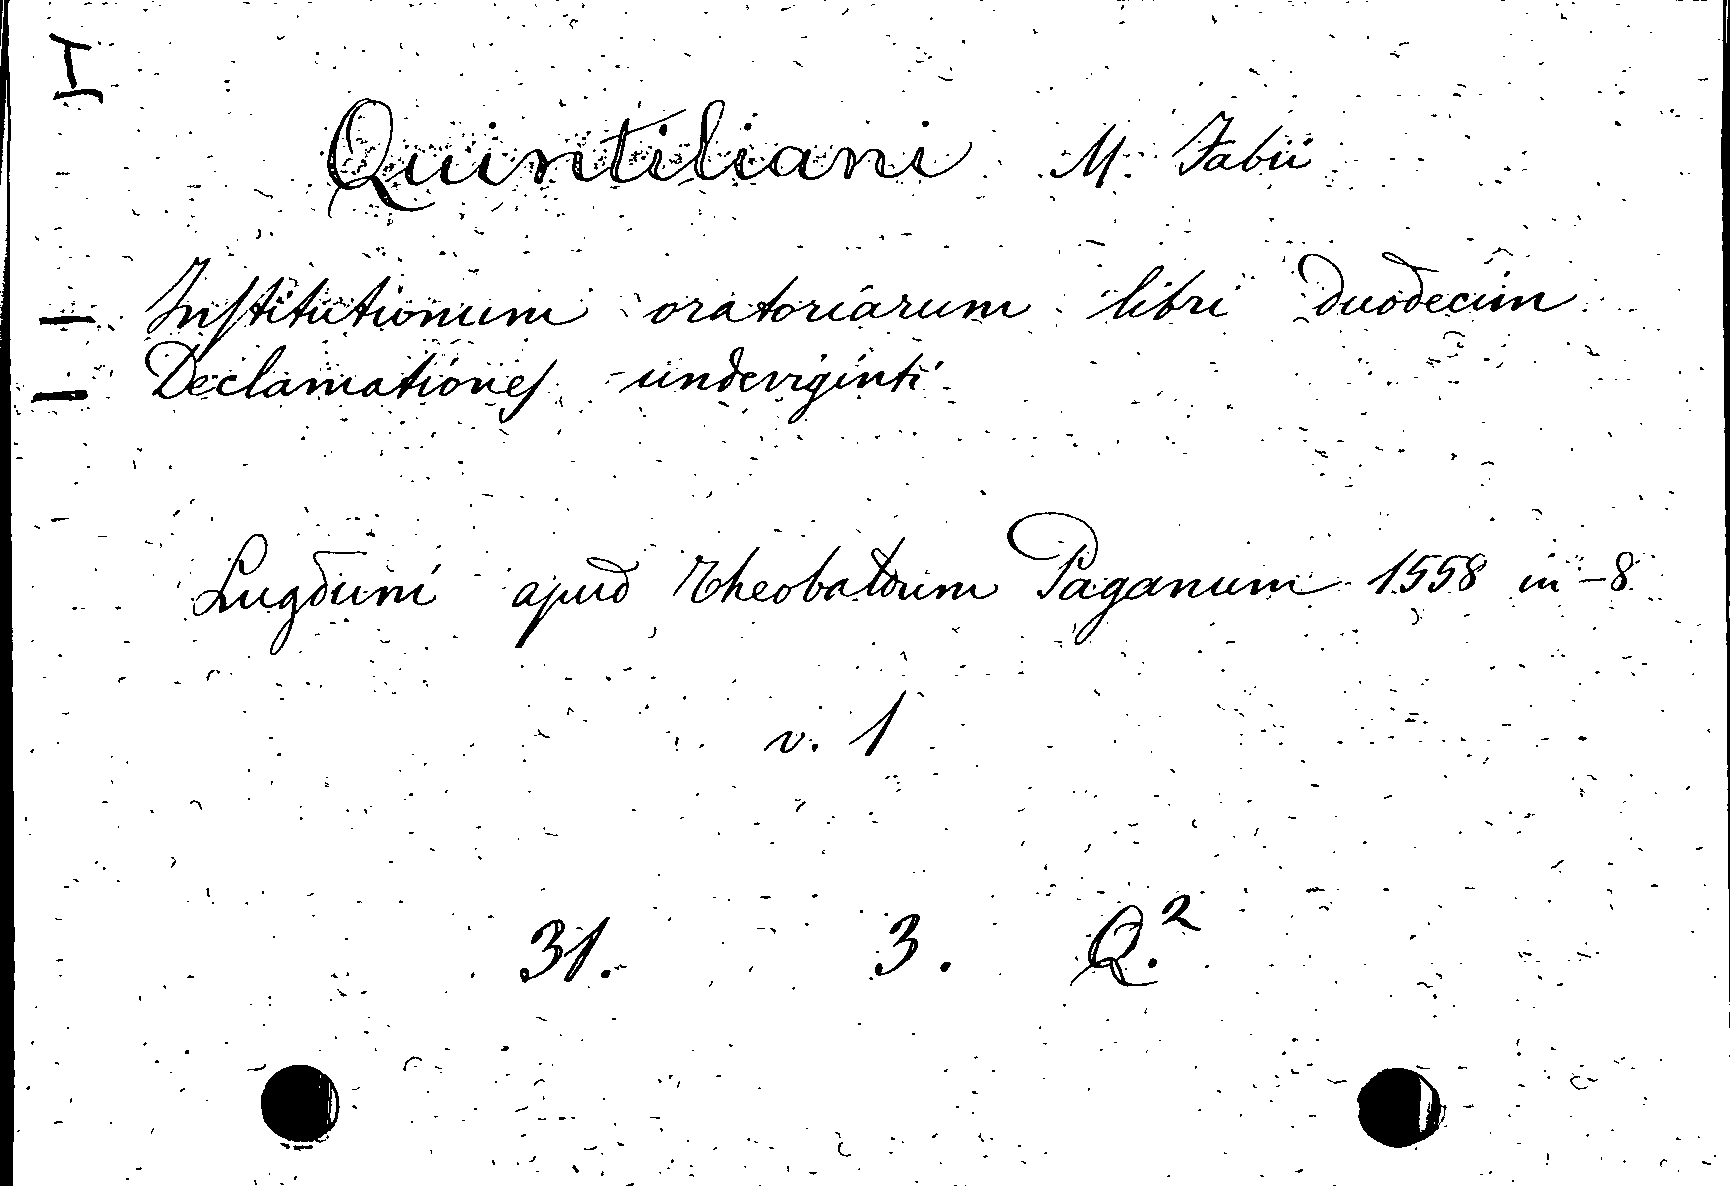 I
Quintiliani M. Fabii
— Institutionum oratoriarum libri duodecim
— Declamationes undeviginti
Lugduni apud Theobaldum Paganum 1558 in-8
v. 1
31. 3. Q.²